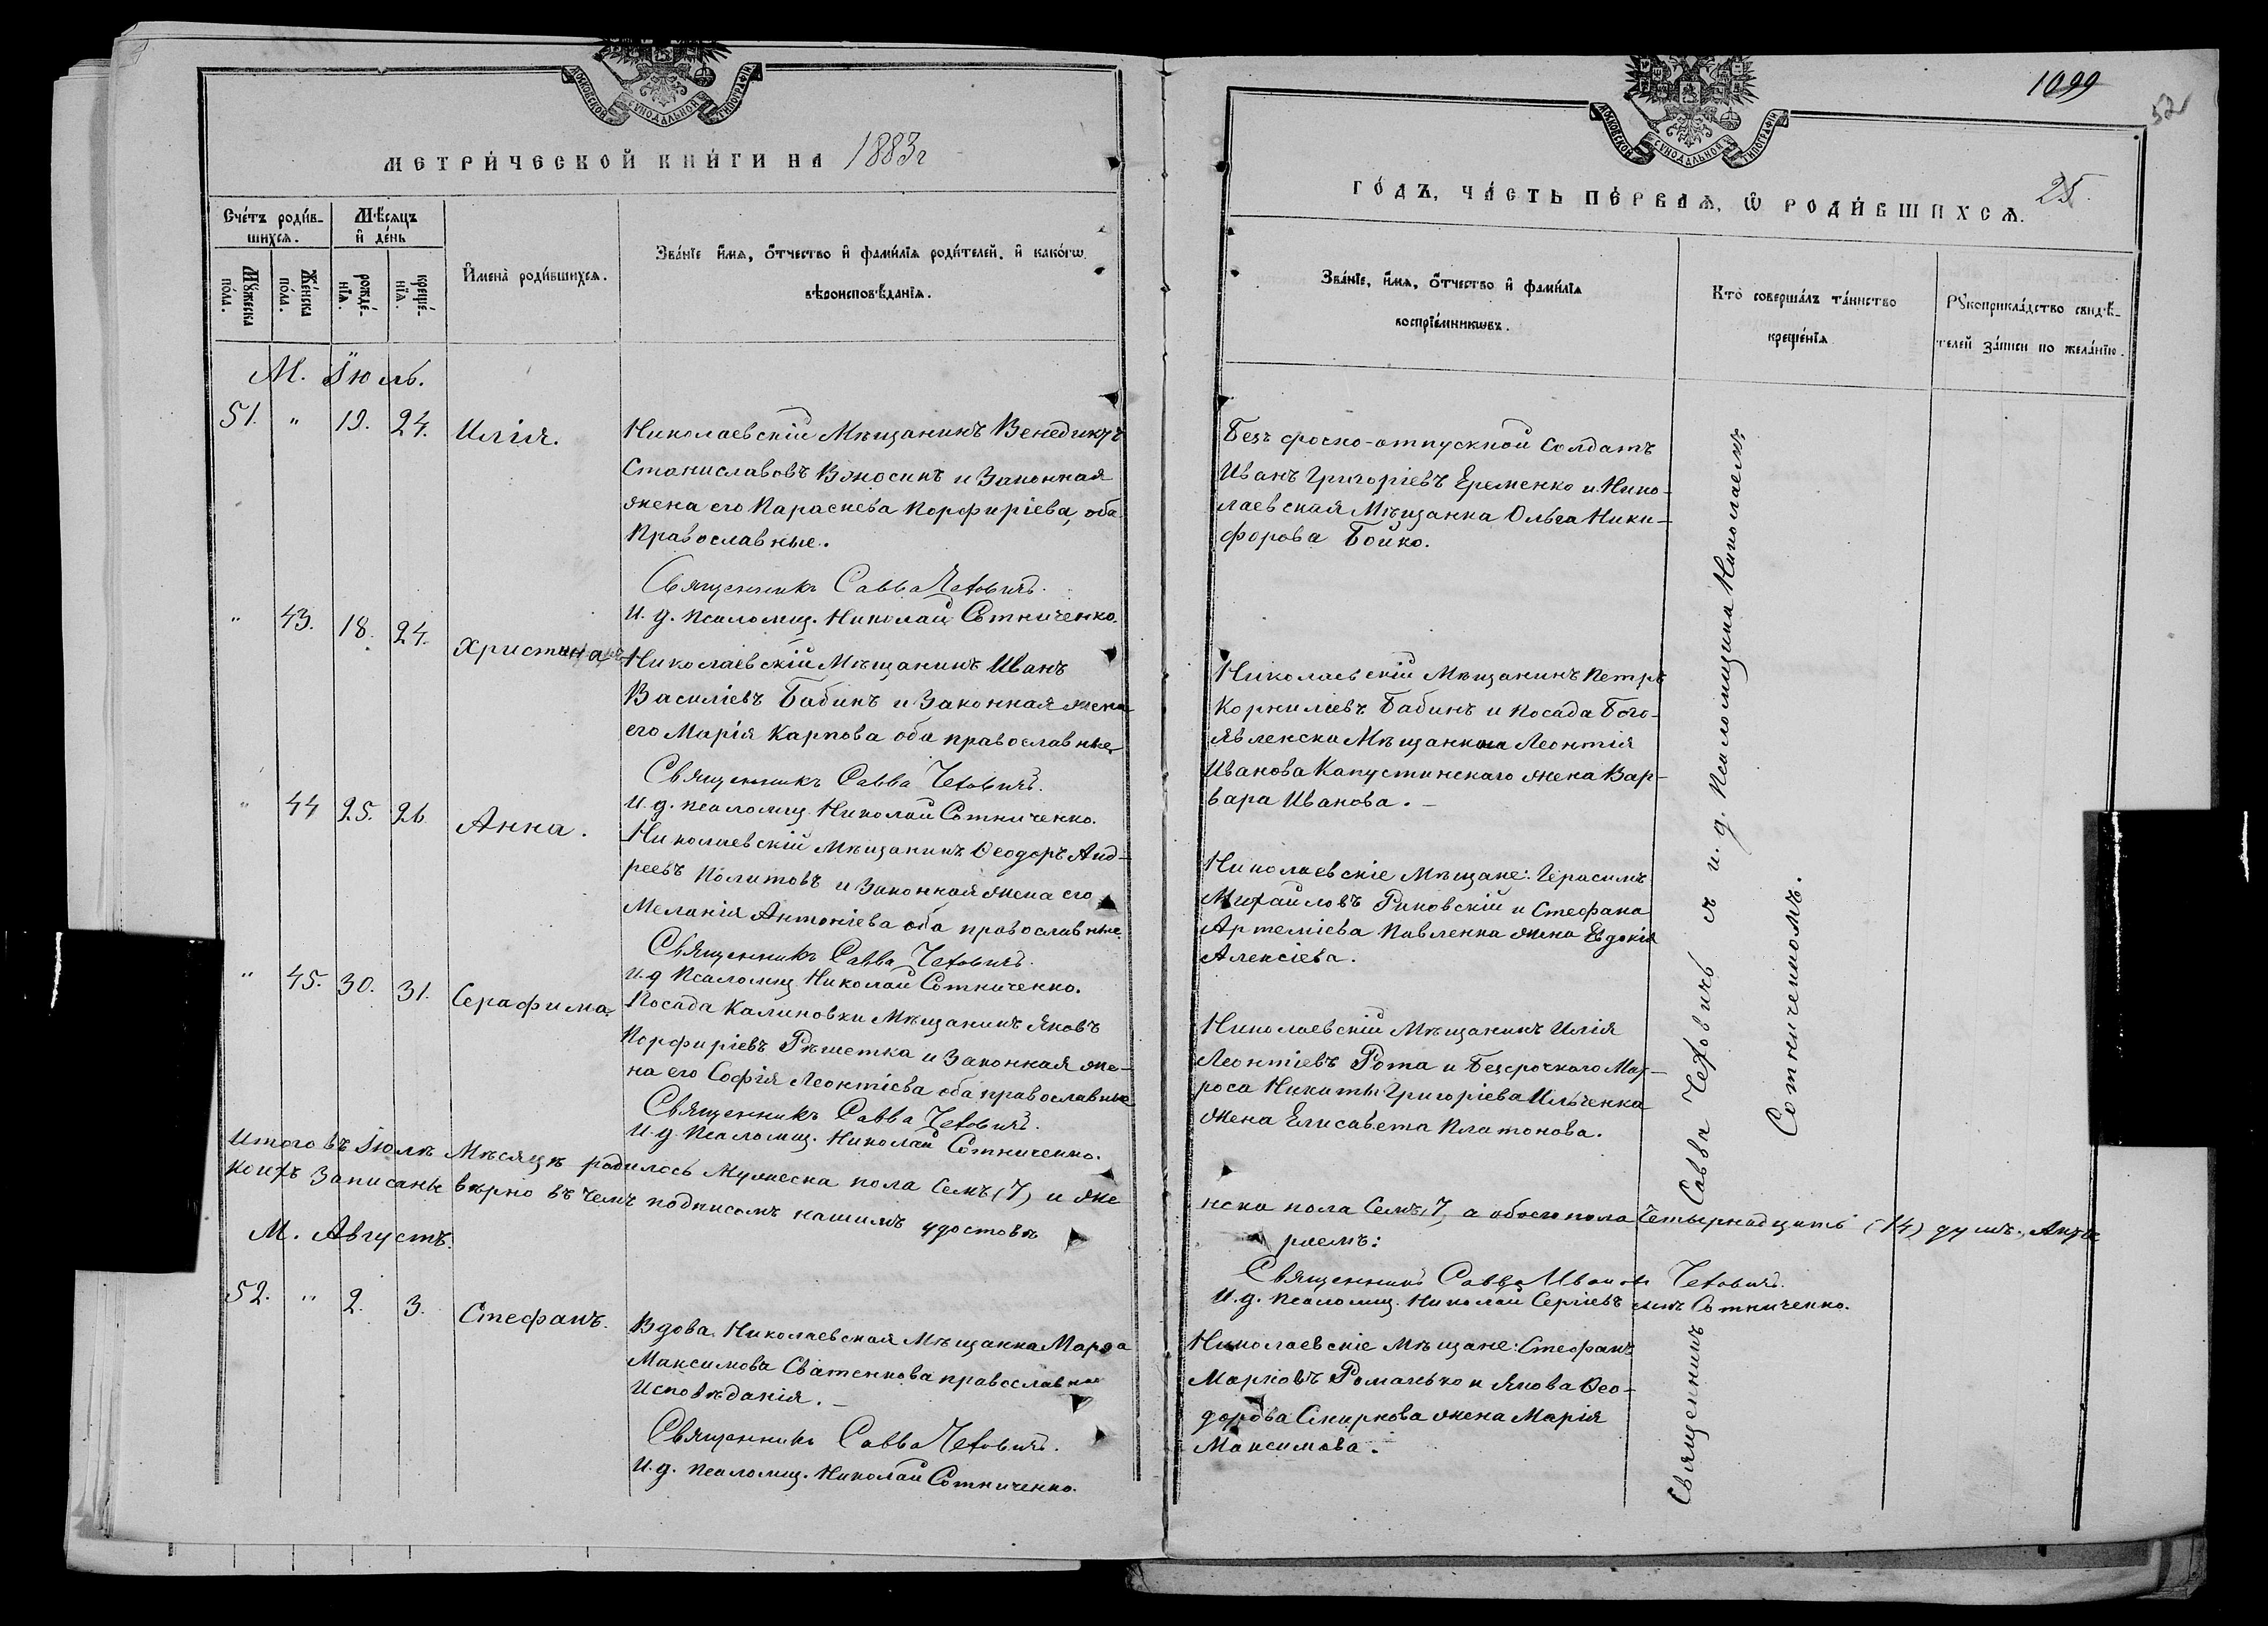 МОСКОВСКОЙ СИНОДАЛЬНОЙ ТИПОГРАФІИ
МЕТРИ́ЧЕСКОЙ КНИ́ГИ НА 1883 г
Сче́тъ роди́в-
шихсѧ.
Мѣ́сѧцъ
и҆ де́нь
Мꙋ́жеска
по́ла.
Же́нска
по́ла.
рожде́-
нїѧ.
креще́-
нїѧ.
И҆мена̀ роди́вшихсѧ.
Зва́нїе и҆́мѧ, ѻ҆́тчество и҆ фами́лїѧ роди́телей, и҆ како́гѡ
вѣроисповѣ́данїѧ.
М. Іюль.
51. " 19. 24. Илія.
Николаевскій Мѣщанинъ Венедиктъ
Станиславовъ Вкосинъ и Законная
жена его Параскева Порфиріева, оба
Православные.
Священникъ Савва Чехович.
И. д. Псаломщ. Николай Сотниченко.
" 43. 18. 24. Христина
Николаевскій Мѣщанинъ Иванъ
Василіевъ Бабинъ и Законная жена
его Марія Карпова оба православные
Священникъ Савва Чехович.
И. д. псаломщ. Николай Сотниченко.
" 44 25. 26 Анна.
Николаевскій Мѣщанинъ Ѳеодоръ Анд-
реевъ Политовъ и Законная жена его
Меланія Антоніева оба православные.
Священникъ Савва Чехович.
И. д Псаломщ Николай Сотниченко.
" 45. 30. 31. Серафима.
Посада Калиновки Мѣщанинъ Яковъ
Порфиріевъ Рѣшетка и Законная же-
на его Софія Леонтіева оба православные
Священникъ Савва Чехович.
И. д. Псаломщ. Николай Сотниченко.
Итого въ Іюлѣ Мѣсяцѣ родилось Мужеска пола Семъ (7) и же
коихъ Записаны вѣрно въ чемъ подписомъ нашимъ удостовѣ
М. Августъ.
52. " 2. 3. Стефанъ.
Вдова Николаевская Мѣщанка Марѳа
Максимова Сватенкова православнаго
Исповѣданія. –
Священникъ Савва Чехович.
И. д. псаломщ. Николай Сотниченко.
1099
52
МОСКОВСКОЙ СИНОДАЛЬНОЙ ТИПОГРАФІИ
ГО́ДЪ, ЧА́СТЬ ПЕ́РВАѦ, Ѽ РОДИ́ВШИХСѦ. 25.
Зва́нїе, и҆́мѧ, ѻ҆́тчество и҆ фами́лїѧ
воспрїе́мникѡвъ.
Кто̀ соверша́лъ та́инство
креще́нїѧ
Рꙋкоприкла́дство свидѣ́-
телей за́писи по жела́нїю.
Безъ сроко-отпускной Солдатъ
Иванъ Григоріевъ Еременко и Нико-
лаевская Мѣщанка Ольга Ники-
форова Бойко.
Николаевскій Мѣщанинъ Петръ
Корниліевъ Бабинъ и Посада Бого-
явленска Мѣщанина Леонтія
Иванова Капустинскаго жена Вар-
вара Иванова. –
Николаевскіе Мѣщане: Герасимъ
Михайловъ Раковскій и Стефана
Артеміева Павленка жена Евдокія
Алексіева.
Николаевскій Мѣщанинъ Илія
Леонтіевъ Рота и Безсрочнаго Мат-
роса Никиты Григоріева Ильченка
Жена Елисавета Платонова.
нска пола Семъ 7, а обоего пола Четырнадцать (14) душъ. Актъ
ряемъ:
Священникъ Савва Иванов Чехович.
И. д. псаломщ. Николай Сергіевъ сынъ Сотниченко.
Николаевскіе Мѣщане: Стефанъ
Марковъ Романько и Якова Ѳео-
дорова Смирнова жена Марія
Максимова.
Священникъ Савва Чеховичъ съ и. д. Псаломщика Николаемъ
Сотниченкомъ.